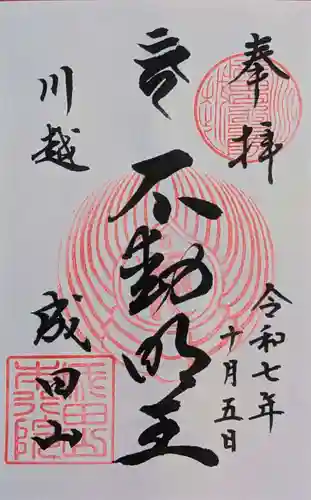 奉拝
令和七年
十月五日
不動明王
川越
成田山